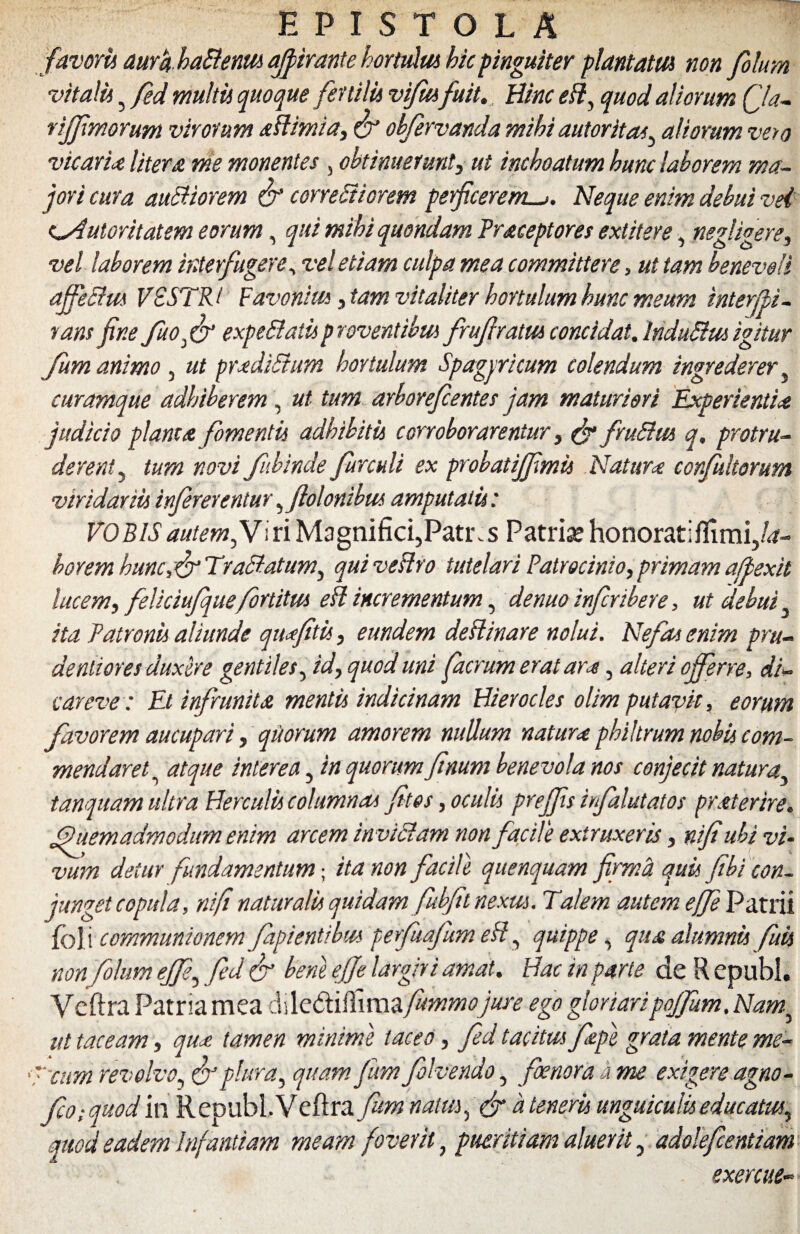 EPISTOLA
favoris aurâ hactenus aſpirante hortulus hic pinguiter plantatus non ſolum
vitalis, ſed multis quoque fertilis viſus fuit. Hinc eſt, quod aliorum Cla-
riſſimorum virorum æſtimia, & obſervanda mihi autoritas, aliorum vero
vicariæ literæ me monentes, obtinuerunt, ut inchoatum hunc laborem ma-
jori cura auctiorem & correctiorem perficerem. Neque enim debui vel
Autoritatem eorum, qui mihi quondam Præceptores extitere, negligere,
vel laborem interfugere, vel etiam culpa mea committere, ut tam benevoli
affectus VESTRI Favonius, tam vitaliter hortulum hunc meum interſpi-
rans ſine ſuo, & expectatis proventibus fruſtratus concidat. Inductus igitur
ſum animo, ut prædictum hortulum Spagyricum colendum ingrederer,
curamque adhiberem, ut tum arboreſcentes jam maturiori Experientiæ
judicio plantæ fomentis adhibitis corroborarentur, & fructus q. protru-
derent, tum novi ſubinde ſurculi ex probatiſſimis Naturæ conſultorum
viridariis inſererentur, ſtolonibus amputatis:
VOBIS autem, Viri Magnifici, Patr.s Patriæ honoratiſſimi, la-
borem hunc, & Tractatum, qui veſtro tutelari Patrocinio, primam aſpexit
lucem, feliciuſque ſortitus eſt incrementum, denuo inſcribere, ut debui,
ita Patronis aliunde quæſitis, eundem deſtinare nolui. Nefas enim pru-
dentiores duxêre gentiles, id, quod uni ſacrum erat aræ, alteri offerre, di-
careve: Et infrunitæ mentis indicinam Hierocles olim putavit, eorum
favorem aucupari, quorum amorem nullum naturæ philtrum nobis com-
mendaret, atque interea, in quorum ſinum benevola nos conjecit natura,
tanquam ultra Herculis columnas ſitos, oculis preſſis inſalutatos præterire.
Quemadmodum enim arcem invictam non facilè extruxeris, niſi ubi vi-
vum detur fundamentum; ita non facilè quenquam firmâ quis ſibi con-
junget copula, niſi naturalis quidam ſubſit nexus. Talem autem eſſe Patrii
ſoli communionem ſapientibus perſuaſum eſt, quippe, quæ alumnis ſuis
non ſolum eſſe, ſed & benè eſſe largiri amat. Hac in parte de Republ.
Veſtra Patria mea dilectiſſima ſummo jure ego gloriari poſſum. Nam,
ut taceam, quæ tamen minimè taceo, ſed tacitus ſæpè grata mente me-
cum revolvo, & plura, quam ſum ſolvendo, fœnora à me exigere agno-
ſco; quod in Republ. Veſtra ſum natus, & à teneris unguiculis educatus,
quod eadem Infantiam meam foverit, pueritiam aluerit, adoleſcentiam
exercue-